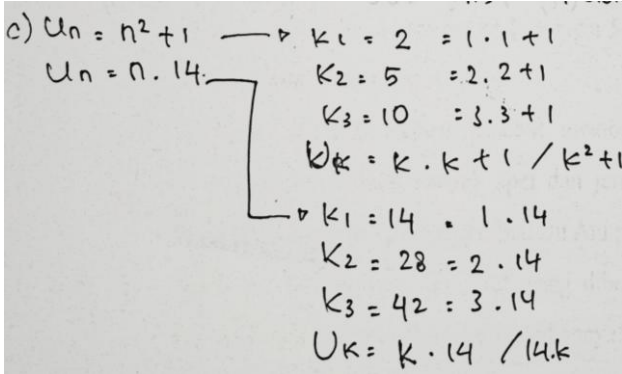 c) Un = n² + 1 → K1 = 2 = 1 . 1 + 1
Un = n . 14. K2 = 5 = 2 . 2 + 1
K3 = 10 = 3 . 3 + 1
UK = K . K + 1 / K² + 1
→ K1 = 14 . 1 . 14
K2 = 28 = 2 . 14
K3 = 42 = 3 . 14
UK = K . 14 / 14.k